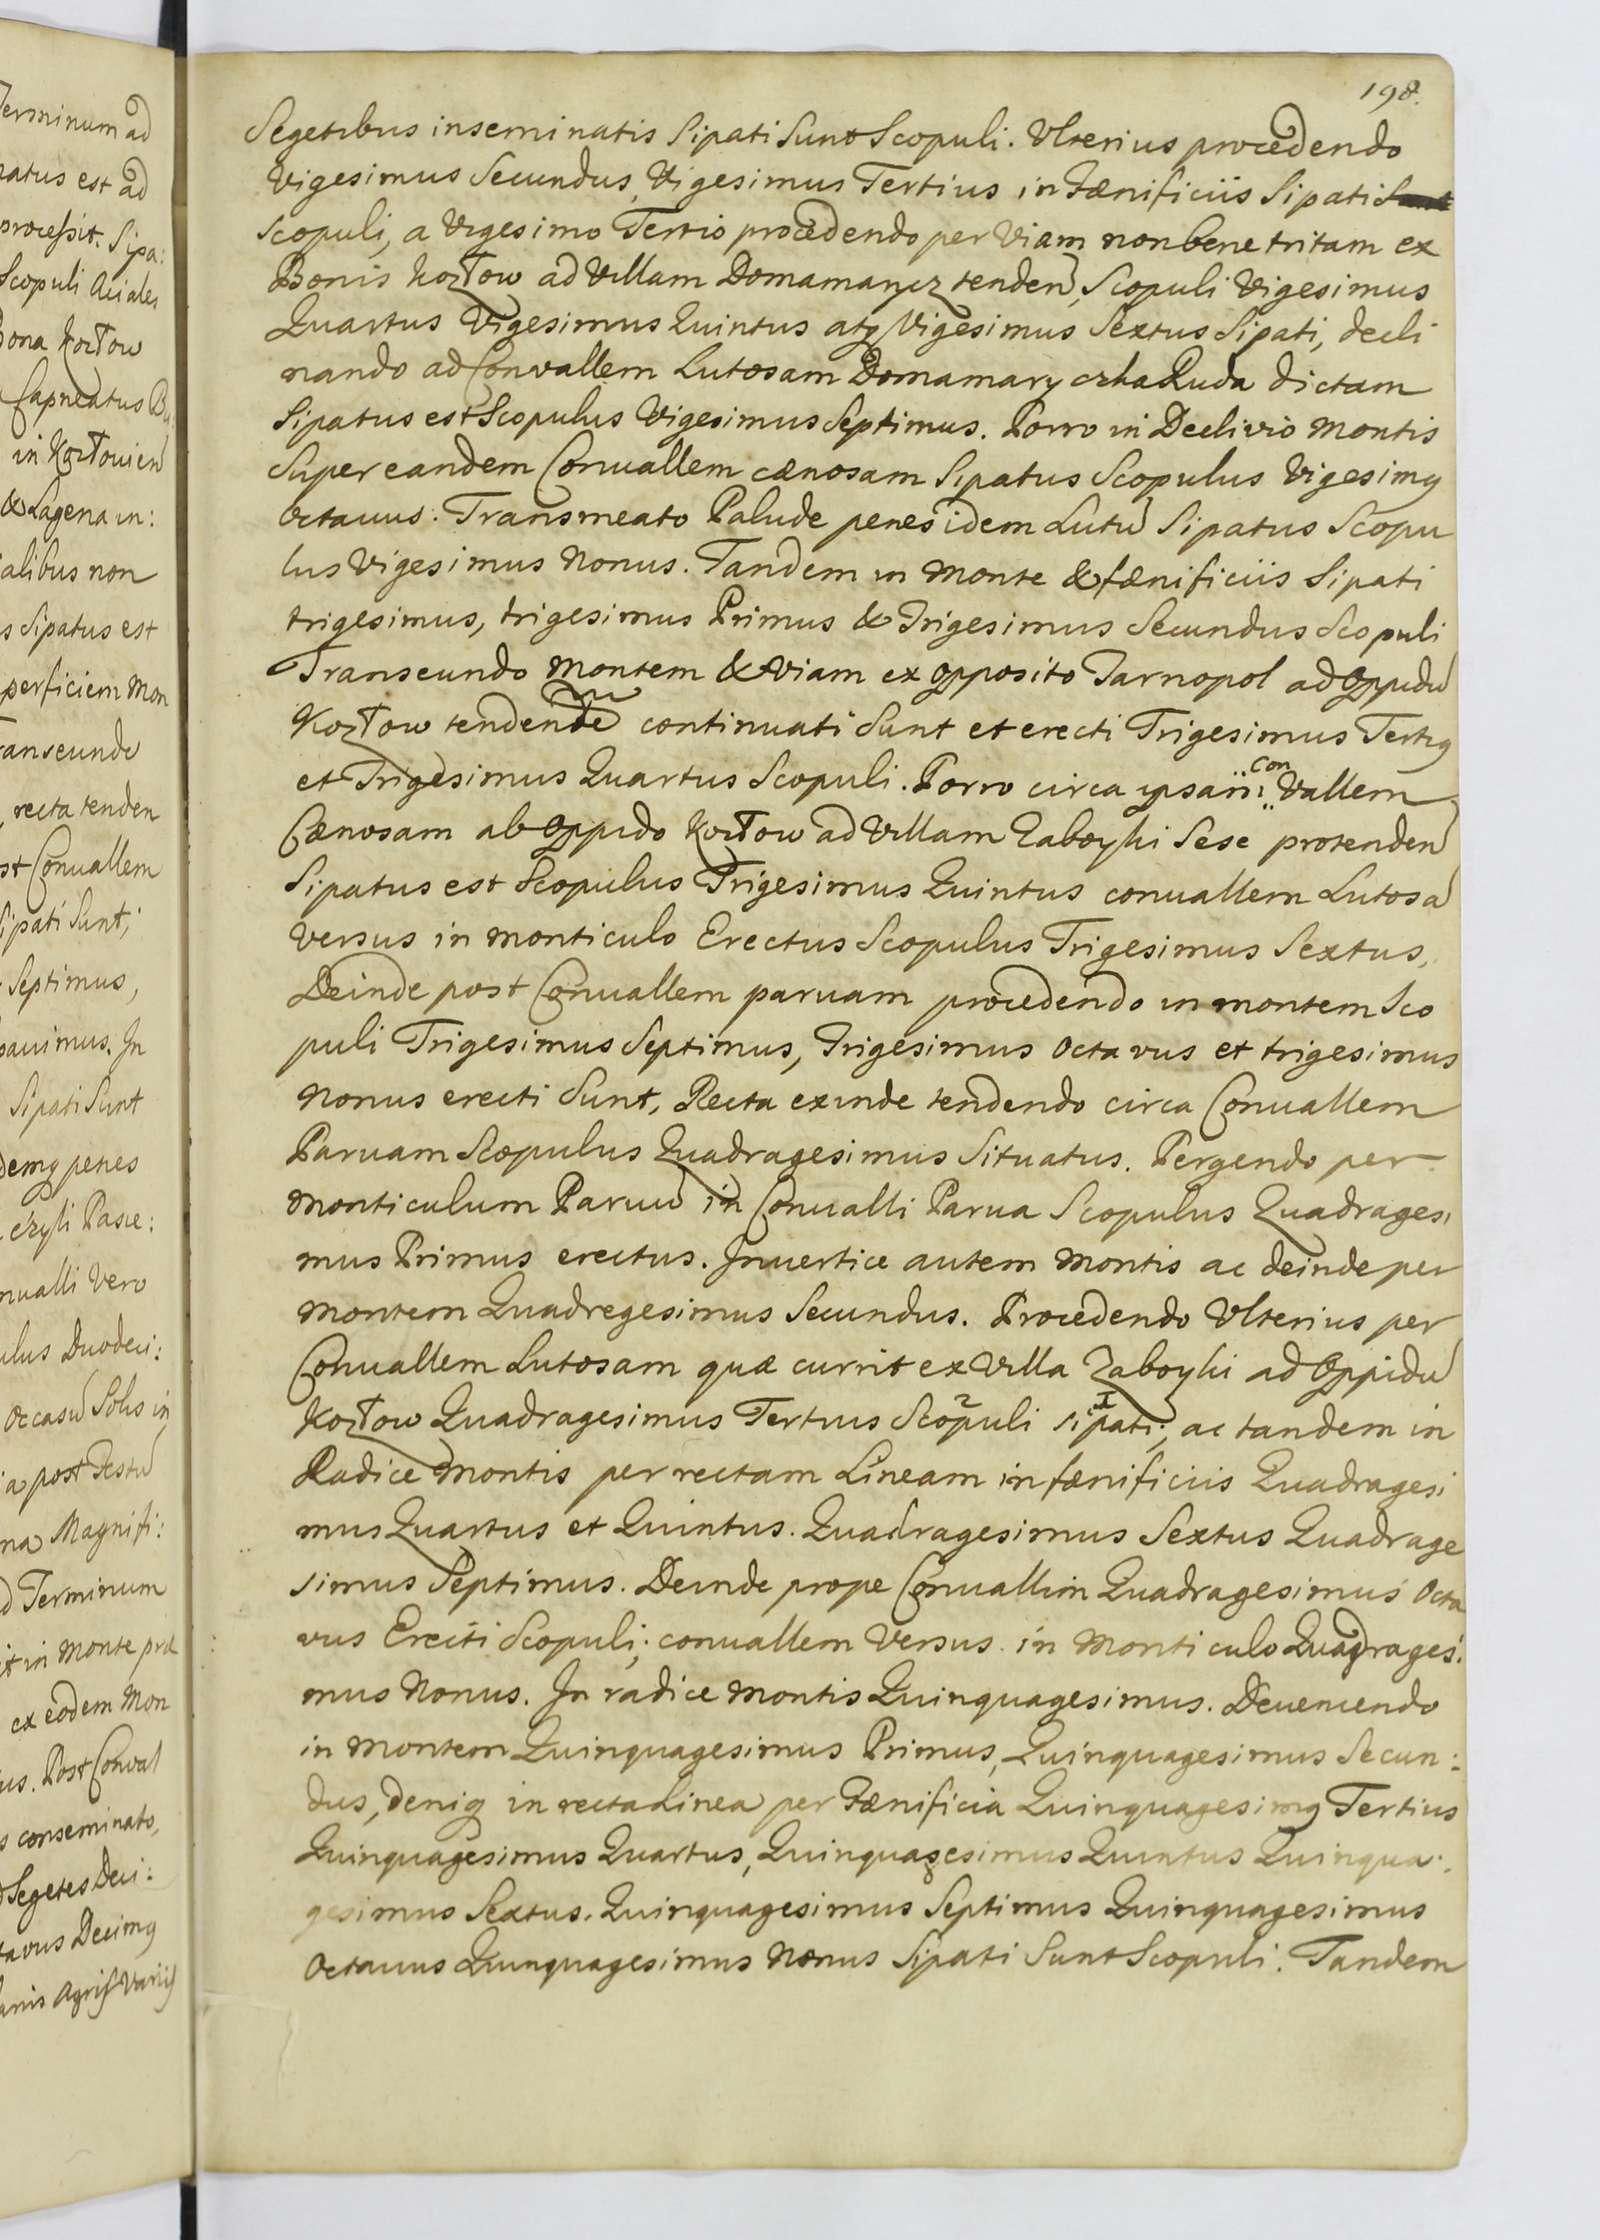 Terminum ad
natus est ad
processit. Sipa:
Scopuli Aciales
Bona Kozłow
Capneatus
in Kozłouien
& Lagena in:
alibus non
s Sipatus est
perficiem Mon
ranseundo
recta tenden
st Conuallem
Sipati Sunt;
Septimus,
In
Sipati Sunt
demq penes
Pasie:
nualli Vero
ulus Duodeci:
Occasũ Solis in
a post Festũ
na Magnifi:
d Terminum
it in Monte
ex eodem Mon
us. Post Conval
s conseminato,
Segetes Deci:
tavus Decimq
Agris Variis
198.
Segetibus inseminatis Sipati Sunt Scopuli. Vlterius procedendo
Vigesimus Secundus, Vigesimus Tertius in Fænificiis Sipati Sunt
Scopuli, a Vigesimo Tertio procedendo per Viam non bene tritam ex
Bonis Kozłow ad Villam Domamarycz tenden, Scopuli Vigesimus
Quartus Vigesimus Quintus atq Vigesimus Sextus Sipati, decli
nando ad Convallem Lutosam Domamaryczka Ruda dictam
Sipatus est Scopulus Vigesimus Septimus. Porro in Declivio Montis
Super eandem Conuallem cænosam Sipatus Scopulus Vigesimq
Octauus. Transmeato Palude penes idem Lutũ Sipatus Scopu
lus Vigesimus Nonus. Tandem in Monte & fænificiis Sipati
trigesimus, trigesimus Primus & Trigesimus Secundus Scopuli
Transeundo Montem & Viam ex opposito Tarnopol ad Oppidũ
Kozłow tendende continuati Sunt et erecti Trigesimus Tertiq
et Trigesimus Quartus Scopuli. Porro circa ipsam con Vallem
Cænosam ab Oppido Kozłow ad Villam Zaboyki Sese protenden
Sipatus est Scopulus Trigesimus Quintus conuallem Lutosã
Versus in monticulo Erectus Scopulus Trigesimus Sextus,
Deinde post Conuallem paruam procedendo in montem Sco
puli Trigesimus Septimus, Trigesimus Octavus et trigesimus
Nonus erecti Sunt, Recta exinde tendendo circa Conuallem
Paruam Scopulus Quadragesimus Situatus. Pergendo per
Monticulum Paruũ in Conualli Parua Scopulus Quadragesi
mus Primus erectus. In vertice autem Montis ac deinde per
Montem Quadregesimus Secundus. Procedendo Vlterius per
Conuallem Lutosam quæ currit ex Villa Zaboyki ad Oppidũ
Kozłow Quadragesimus Tertius Scopuli 2 sipati 1, ac tandem in
Radice Montis per rectam Lineam in fænificiis Quadragesi
mus Quartus et Quintus. Quadragesimus Sextus Quadrage
simus Septimus. Deinde prope Conuallim Quadragesimus Octa
vus Erecti Scopuli; conuallem Versus in Monticulo Quadragesi
mus Nonus. In radice Montis Quinquagesimus. Deueniendo
in Montem Quinquagesimus Primus, Quinquagesimus Secun:
dus, Deniq in recta Linea per Fænificia Quinquagesimq Tertius
Quinquagesimus Quartus, Quinquagesimus Quintus Quinqua:
gesimus Sextus. Quinquagesimus Septimus Quinquagesimus
Octauus Quinquagesimus Nonus Sipati Sunt Scopuli. Tandem